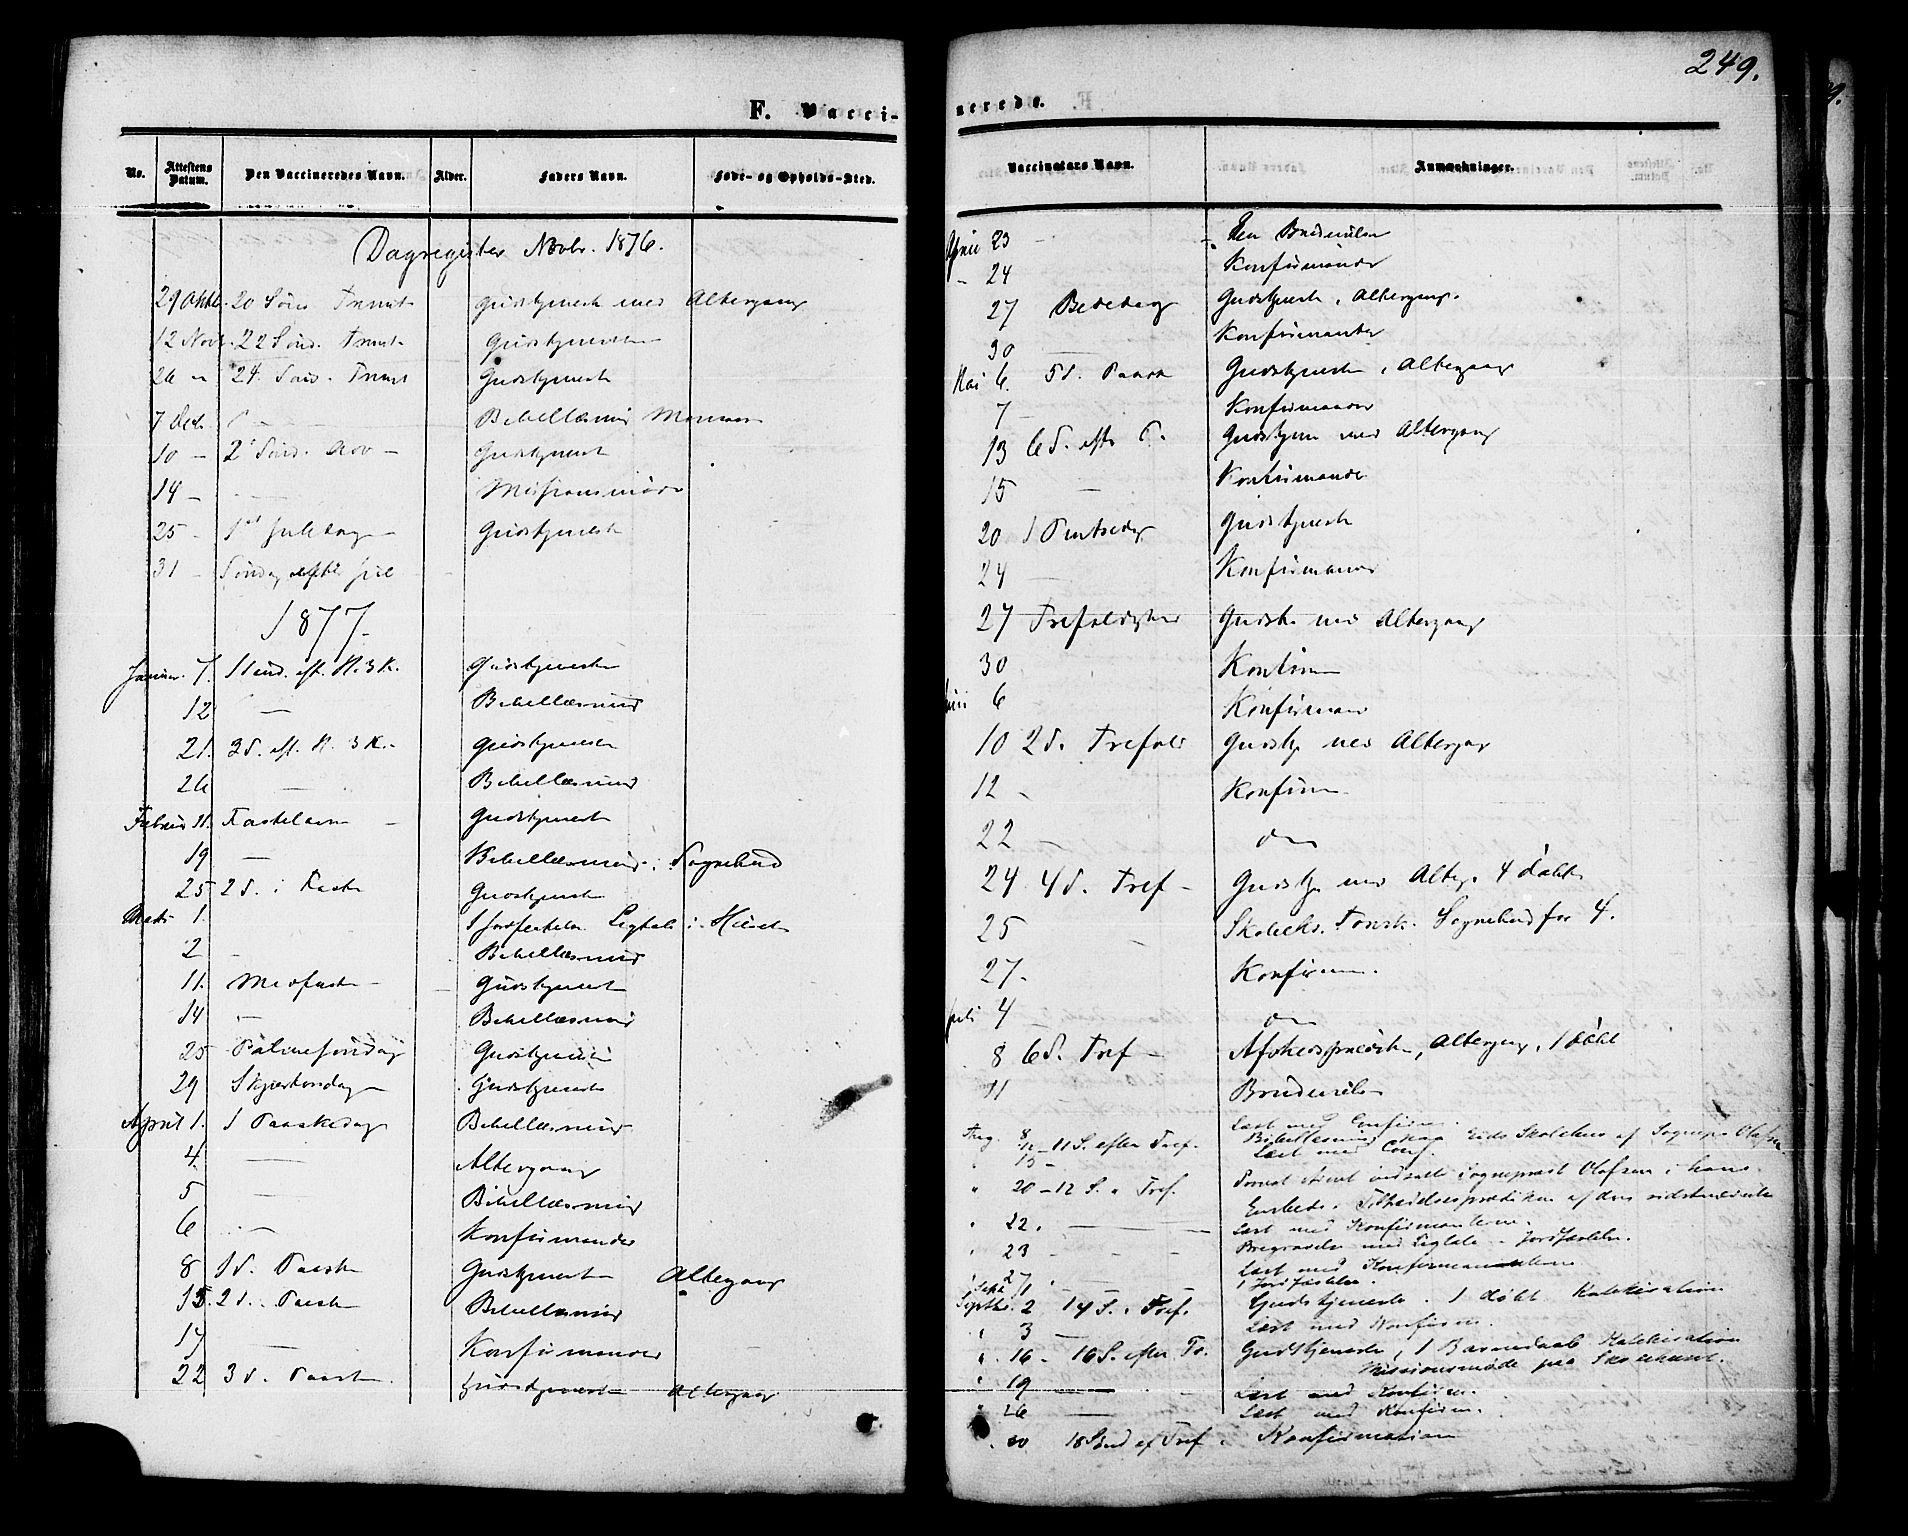 249.
F. Vacci-
nerede.
No.
Attestens Datum.
Den Vaccineredes Navn.
Alder.
Faders Navn.
Føde- og Opholds-Sted.
Vaccinators Navn.
Anmærkninger.
Dagregister Novbr. 1876.
29 Oktbr. 20 Sønd. Trinit Gudstjeneste med Altergang
12 Novbr. 22 Sønd. Trinit Gudstjeneste
26 " 24. Sønd. Trinit Gudstjeneste
7 Decb. - Bibellæsning
10 - 2 Sønd. Adv - Gudstjenest
14 - Missionsmøde
25 - 1st Juledag - Gudstjeneste
31 - Søndag efter Jul
1877
Januar 7. 1 Sönd. eft. H. 3 K. Gudstjeneste
12 - Bibellæsning
21. 2 S. eft. H. 3 K. - Gudstjeneste
26 - Bibellæsning
Februar 11. Fastelavn - Gudstjeneste
19 - Bibellæsning. Sognebud
25 2 S. i Faste Gudstjeneste
Marts 1. 1 Jordfæstelse Ligtale i Huset
2 - Bibellæsning
11. Midfaste - Gudstjenest
14 - Bibellæsning
25 Palmesöndag Gudstjeneste
29 Skjærtorsdag - Gudstjeneste
April 1. 1 Paaskedag Bibellæsning
4. - Altergang
5 - Bibellæsning
6 - Konfirmander
8 1 S. Paaske Gudstjeneste Altergang
15. 2 S. Paaske Bibellæsning
17 - Konfirmander
22 3 S. Paaske Gudstjeneste Altergang
April 23 - En Brudevielse
- 24 Konfirmander
27 Bededag Gudstjeneste, Altergang.
30 - Konfirmanter
Mai 6. 5 S. Paaske Gudstjeneste, Altergang
7 - Konfirmander
13 6 S. efter P. Gudstjen med Altergang
15 - Konfirmander
20 1 Pintsedag Gudstjeneste
24 - Konfirmander
27 Trefoldighed Gudstj. med Altergang
30 Konfirm
Juni 6 Konfirman
10 2 S. Trefold Gudstj med Altergang
12 - Konfirm
22 - do
24 4 S. Tref - Gudstj med Alterg. 4 døbte
25 - Sognebud for 4.
27. Konfirm.
Juli 4 do
8 6 S. Tref - Afskedsprædiken, Altergang, 1 döbt
11 Brudevielse
Aug. 8 Læst med Confirm.
12 - 11 S. efter Tref. Bibellæsning paa Eids Skolehus af Sognepr. Olafsen
15 - Læst med Conf.
" 20 - 12 S. " Tref. indsatte Sogneprest Olafsen i hans
Embede. Tiltrædelsesprædiken af den sidstnævnte
" 22. - Læst med Konfirmanterne.
" 23 - Begravelse med Ligtale. Jordfæstelse.
" 27. - Læst med Konfirmanterne
Sept. 1 1 Jordfæstelse.
Septbr. 2 14 S. " Tref. Gudstjeneste. 1 döbt Katekisation
" 3 - Læst med Konfirm.
". 16 - 16 S. efter Tr. Gudstjeneste, 1 Barnedaab Katekisation
Missionsmøde paa Skolehuset.
" 19 - Læst med Konfirm.
" 26 - Læst med Konfirm.
". 30 18 Sönd ef Tref. Konfirmation